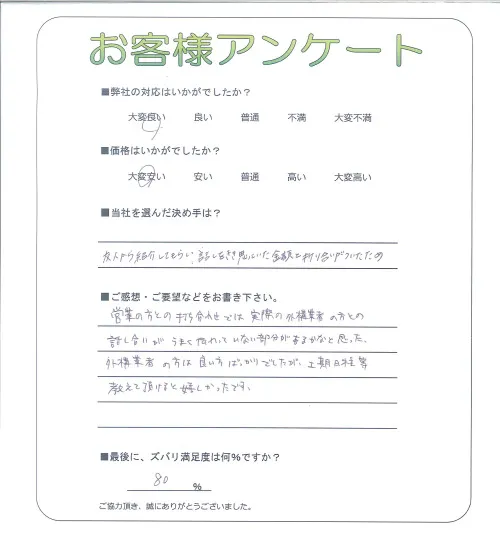 お客様アンケート
■弊社の対応はいかがでしたか？
大変良い 良い 普通 不満 大変不満
■価格はいかがでしたか？
大変安い 安い 普通 高い 大変高い
■当社を選んだ決め手は？
友人から紹介してもらい、話しを聞き思いいた金額と折り合いがついたため
■ご感想・ご要望などをお書き下さい。
営業の方との打ち合わせでは実際の外構業者の方との
話し合いがうまく伝わっていない部分があるかなと思った。
外構業者の方は良い方ばっかりでしたが、工期日程等
教えて頂けると嬉しかったです。
■最後に、ズバリ満足度は何%ですか？
80 %
ご協力頂き、誠にありがとうございました。